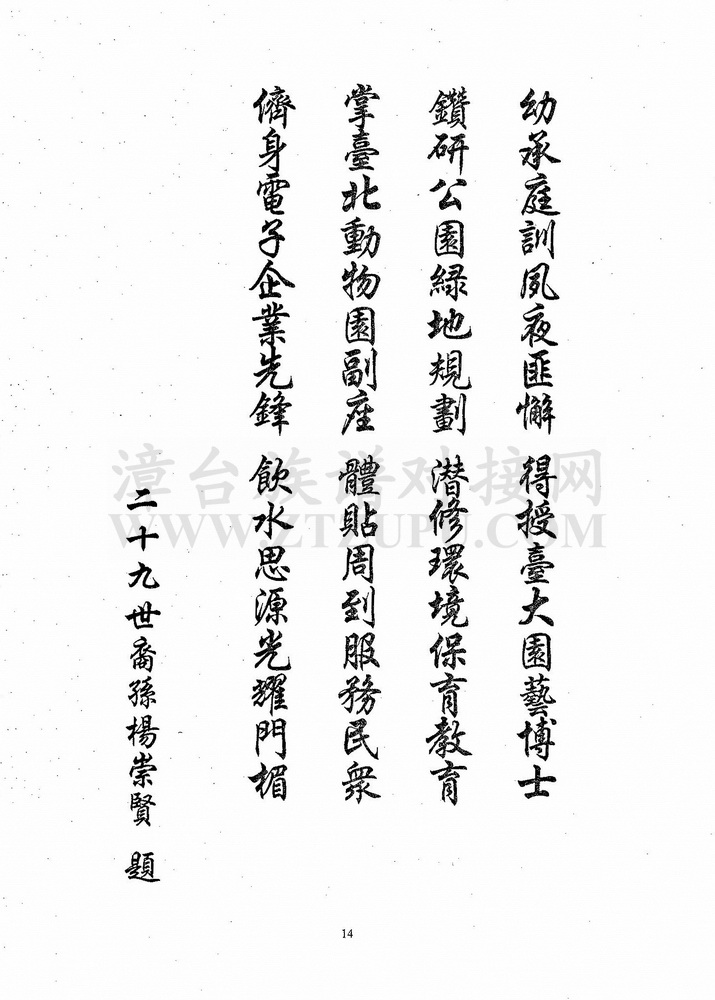 幼承庭訓夙夜匪懈 得授臺大園藝博士
鑽研公園綠地規劃 潛修環境保育教育
掌臺北動物園副座 體貼周到服務民眾
儕身電子企業先鋒 飲水思源光耀門楣
二十九世裔孫楊崇賢 題
漳台族谱对接网
WWW.ZTZUPU.COM
14